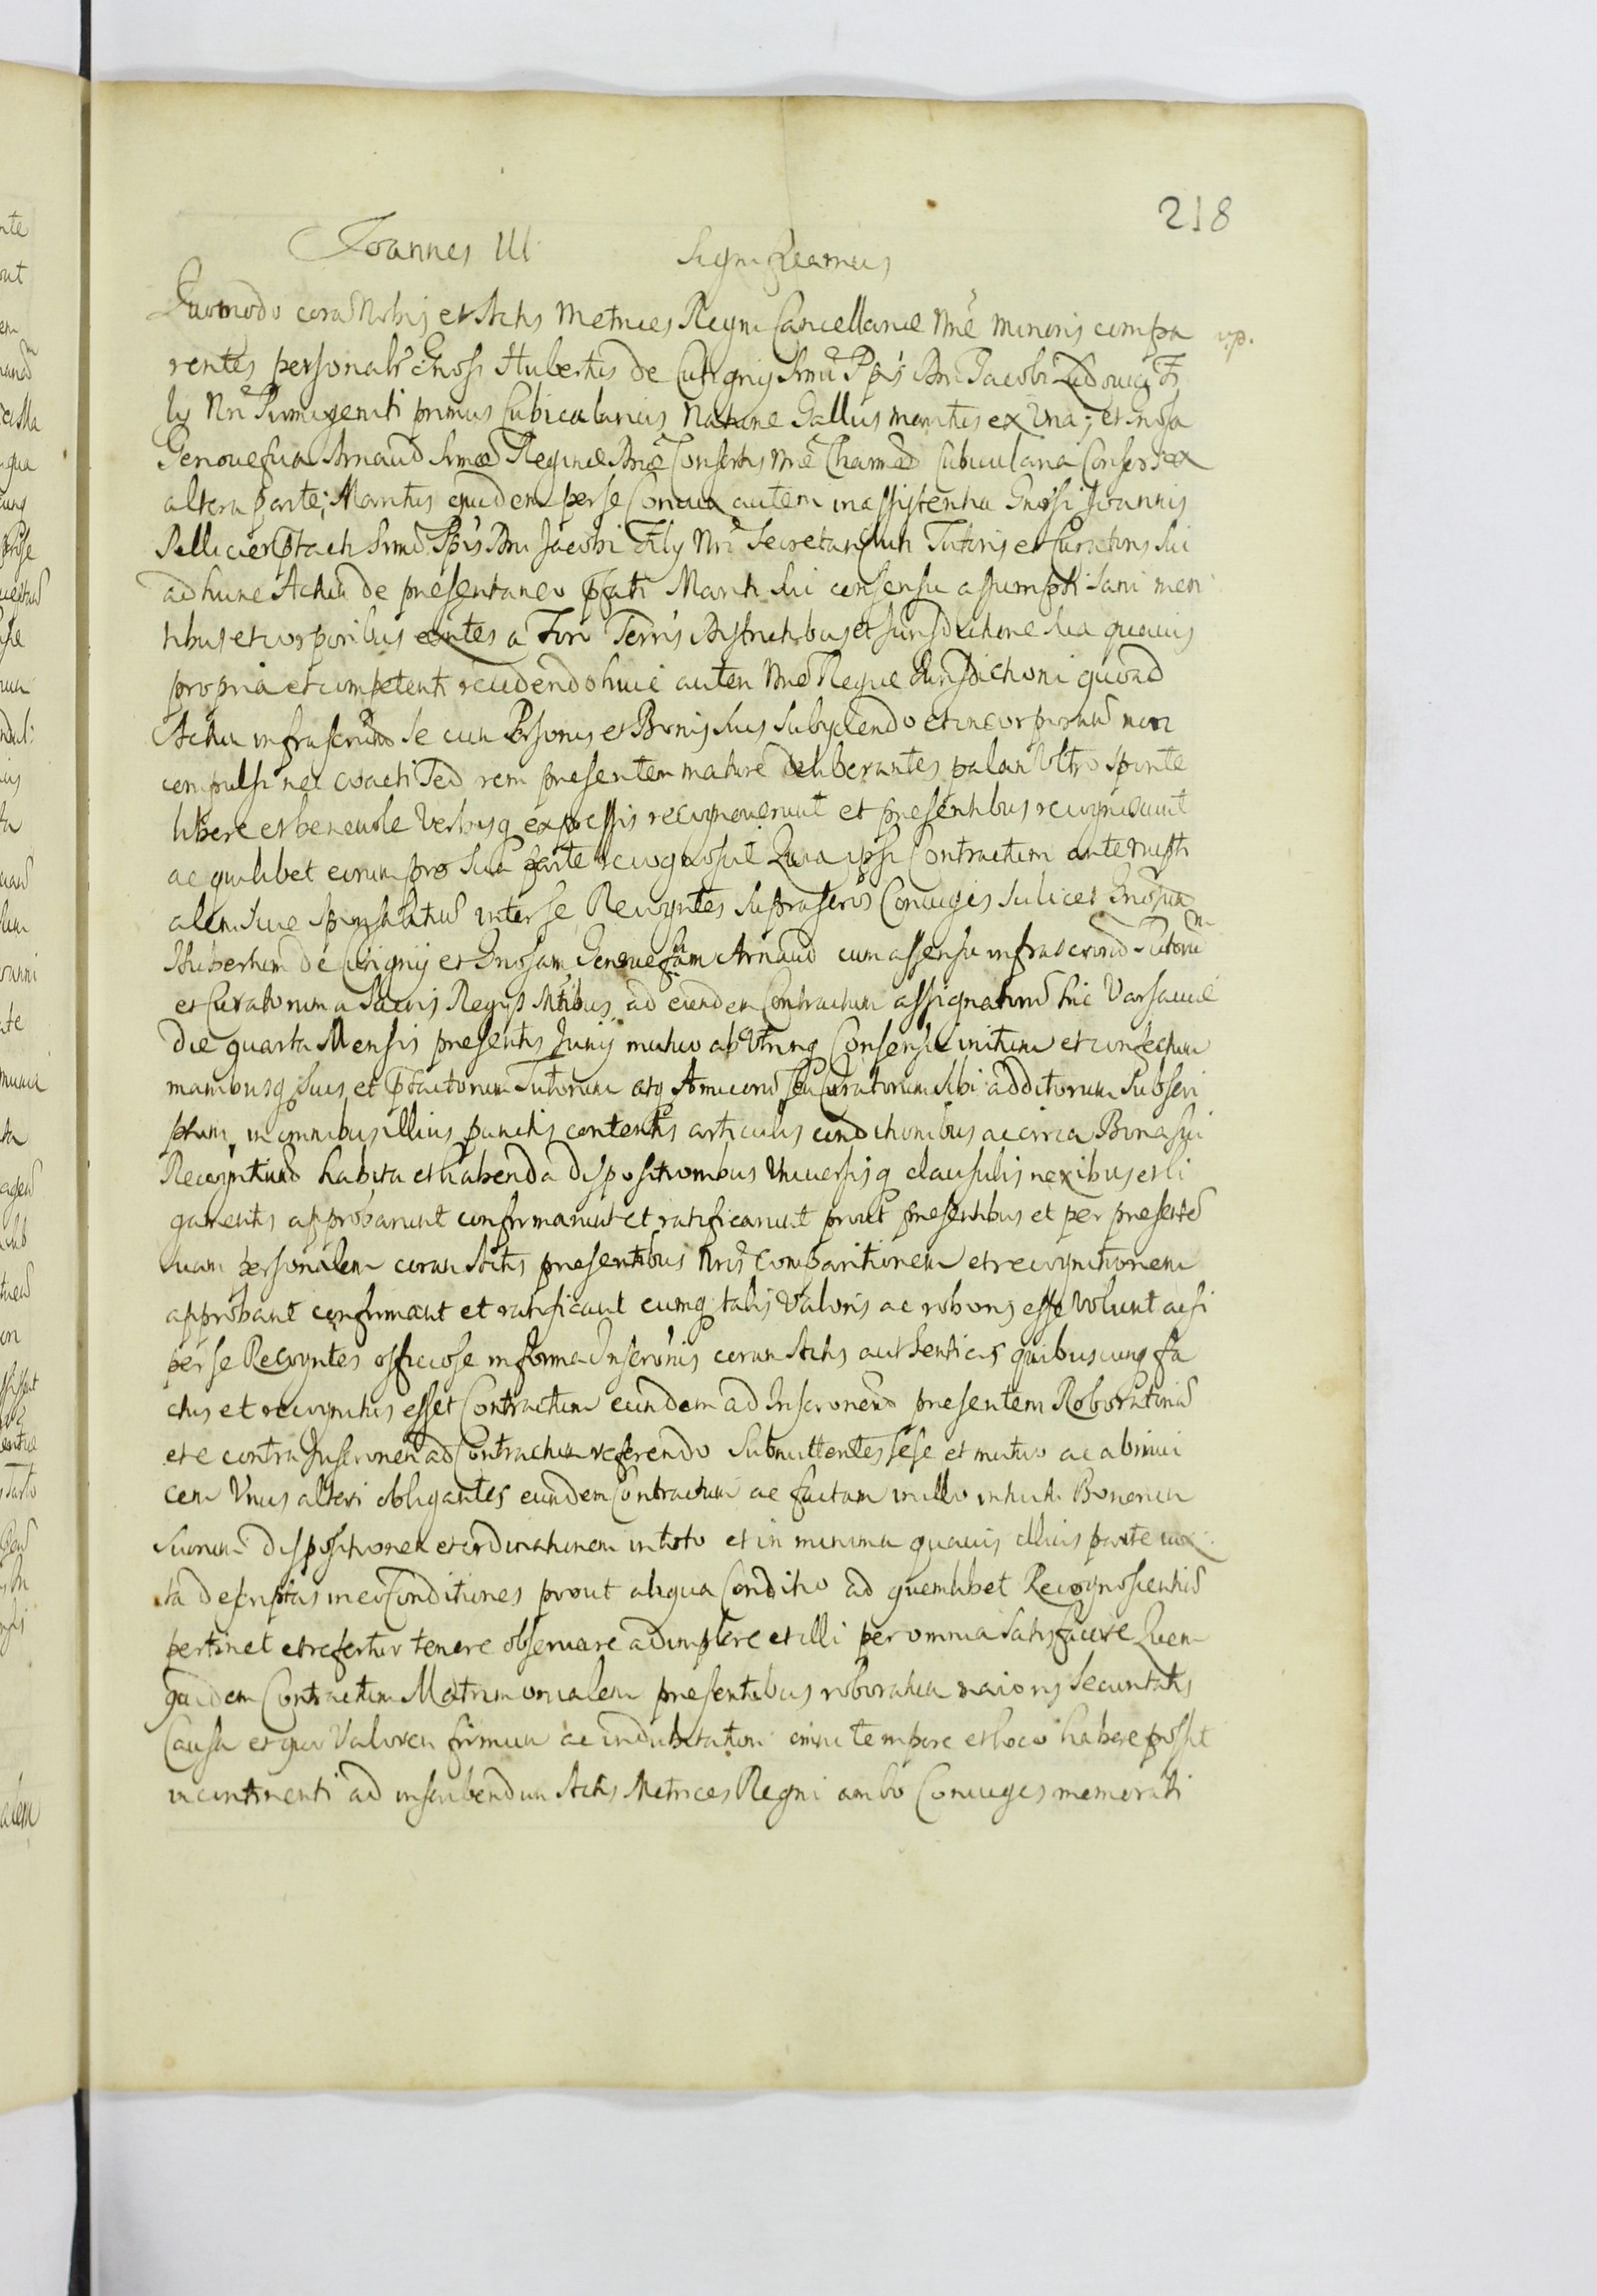 218
Joannes III Significamus
Quomodo corã Nobis et Actis Metrices Regni Cancellariæ Nrẽ minoris compa
rentes personalr Gnosi Hubertus de Cutigny Srmi Ppis Dni Jacobi Ludovici Fi
lij Nri Primogeniti primus Cubicularius Natione Gallus maritus ex Una; et Gnosa
Genouefua Arnaud Srmæ Reginæ Dnæ Consortis Nrẽ Charmæ Cubicularia Consors ex
altera parte; Maritus quidem per se Coniux autem in assistentia Gnosi Joannis
Pellicier Ptacti Srmi Ppis Dni Jacobi Filij Nri Secretarij uti Tutoris et Curatoris sui
ad hunc Actum de presentaneo pfati Mariti sui consensu assumpti sani men
tibus et corporibus exntes a Foro Terris Districtibus et Jurisdictione sua quavis
propria et competenti recedendo huic autem Nrẽ Regiæ Jurisdictioni quoad
Actum infrascrip se cum Personis et Bonis suis subyciendo et incorporand non
compulsi nec coacti sed rem presentem mature deliberantes palam Ultro sponte
libere et beneuole Verbisq expressis recognouerunt et presentibus recognoscunt
ac quilibet eorum pro sua parte recognoscit Quia ipsi Contractum antenupti
alem siue sponsalitiũ inter se Recogntes suprascros Coniuges scilicet Gnosum
Hubertum de Cutigny et Gnosam Genouefam Arnaud cum assensu infrascriptorũ Tutorum
et Curatorum a Sacris Regys Mtibus ad eundem Contractum assignatorũ hic Varsauiæ
die quarta Mensis presentis Junij mutuo ab Utrinq Consensu initum et confectum
manibusq suis et pfactorum Tutorum atq Amicorũ seu Curatorum sibi additorum Subscri
ptum, in omnibus illius punctis contentis articulis conditionibus ac circa Bona sui
Recogntium habita et habenda dispositionibus Uniuersisq clausulis nexibus et li
gamentis approbarunt confirmarunt et ratificarunt prout presentibus et per presentẽ
suam personalem coram Actis presentibus Nris Comparitionem et recognitionem
approbant confirmant et ratificant eumq talis Valoris ac roboris esse Volunt acsi
per se Recogntes officiose in forma Inscronis coram Actis authenticis quibuscunq fa
ctus et recognitus esset Contractum eundem ad Inscronem presentem Roboratoriã
et e contra Inscronem ad Contractum referendo submittentes sese et mutuo ac ab inui
cem Unus alteri obligantes eundem Contractum ac factam in illo intuitu Bonorum
suorum dispositionem et ordinationem in toto et in minima quauis illius parte iux
ta descriptas in eo Conditiones prout aliqua Conditio ad quemlibet Recognoscentiũ
pertinet et refertur tenere obseruare adimplere et illi per omnia satisfacere Quem
quidem Contractum Matrimonialem presentibus roboratum maioris securitatis
Causa et quo Valorem firmum ac indubitatum omni tempore et loco habere possit
incontinenti ad inscribendum Actis Metrices Regni ambo Coniuges memorati